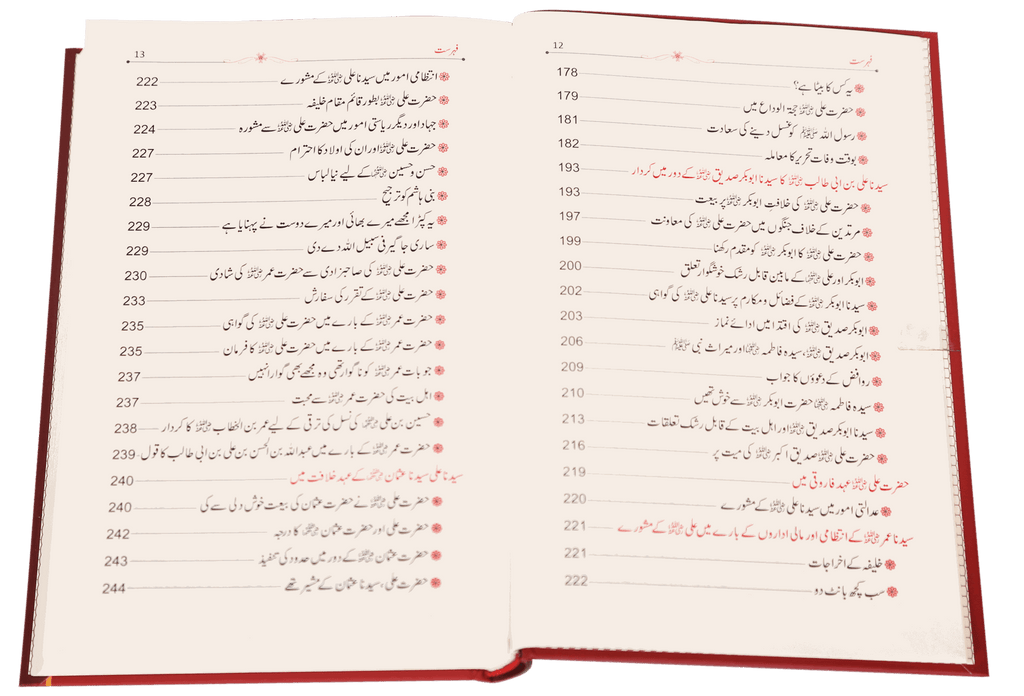 فہرست 12
یہ کس کا بیٹا ہے؟ 178
حضرت علی رضی اللہ عنہ حجۃ الوداع میں 179
رسول اللہ ﷺ کو غسل دینے کی سعادت 181
بوقت وفات تحریر کا معاملہ 182
سیدنا علی بن ابی طالب رضی اللہ عنہ کا سیدنا ابوبکر صدیق رضی اللہ عنہ کے دور میں کردار 193
حضرت علی رضی اللہ عنہ کی خلافتِ ابوبکر رضی اللہ عنہ پر بیعت 193
مرتدین کے خلاف جنگوں میں حضرت علی رضی اللہ عنہ کی معاونت 197
حضرت علی رضی اللہ عنہ کا ابوبکر رضی اللہ عنہ کو مقدم رکھنا 199
ابوبکر اور علی رضی اللہ عنہما کے مابین قابل رشک خوشگوار تعلق 200
سیدنا ابوبکر رضی اللہ عنہ کے فضائل و مکارم پر سیدنا علی رضی اللہ عنہ کی گواہی 202
ابوبکر صدیق رضی اللہ عنہ کی اقتدا میں ادائے نماز 203
ابوبکر صدیق رضی اللہ عنہ، سیدہ فاطمہ رضی اللہ عنہا اور میراث نبی ﷺ 206
روافض کے دعوؤں کا جواب 209
سیدہ فاطمہ رضی اللہ عنہا حضرت ابوبکر رضی اللہ عنہ سے خوش تھیں 210
سیدنا ابوبکر صدیق رضی اللہ عنہ اور اہل بیت کے قابل رشک تعلقات 213
حضرت علی رضی اللہ عنہ صدیق اکبر رضی اللہ عنہ کی میت پر 216
حضرت علی رضی اللہ عنہ عہد فاروقی میں 219
عدالتی امور میں سیدنا علی رضی اللہ عنہ کے مشورے 220
سیدنا عمر رضی اللہ عنہ کے انتظامی اور مالی اداروں کے بارے میں علی رضی اللہ عنہ کے مشورے 221
خلیفہ کے اخراجات 221
سب کچھ بانٹ دو 222
فہرست 13
انتظامی امور میں سیدنا علی رضی اللہ عنہ کے مشورے 222
حضرت علی رضی اللہ عنہ بطور قائم مقام خلیفہ 223
جہاد اور دیگر ریاستی امور میں حضرت علی رضی اللہ عنہ سے مشورہ 224
حضرت علی رضی اللہ عنہ اور ان کی اولاد کا احترام 227
حسن و حسین رضی اللہ عنہما کے لیے نیا لباس 227
بنی ہاشم کو ترجیح 228
یہ کپڑا مجھے میرے بھائی اور میرے دوست نے پہنایا ہے 229
ساری جاگیر فی سبیل اللہ دے دی 229
حضرت علی رضی اللہ عنہ کی صاحبزادی سے حضرت عمر رضی اللہ عنہ کی شادی 230
حضرت علی رضی اللہ عنہ کے تقرر کی سفارش 233
حضرت عمر رضی اللہ عنہ کے بارے میں حضرت علی رضی اللہ عنہ کی گواہی 235
حضرت عمر رضی اللہ عنہ کے بارے میں حضرت علی رضی اللہ عنہ کا فرمان 235
جو بات عمر رضی اللہ عنہ کو ناگوار تھی وہ مجھے بھی گوارا نہیں 237
اہل بیت کی حضرت عمر رضی اللہ عنہ سے محبت 237
حسنین بن علی رضی اللہ عنہما کی نسل کی ترقی کے لیے عمر بن الخطاب رضی اللہ عنہ کا کردار 238
حضرت عمر رضی اللہ عنہ کے بارے میں عبداللہ بن الحسن بن علی بن ابی طالب کا قول 239
سیدنا علی سیدنا عثمان رضی اللہ عنہما کے عہد خلافت میں 240
حضرت علی رضی اللہ عنہ نے حضرت عثمان کی بیعت خوش دلی سے کی 240
حضرت علی اور حضرت عثمان رضی اللہ عنہما کا درجہ 242
حضرت عثمان رضی اللہ عنہ کے دور میں حدود کی تنفیذ 243
حضرت علی، سیدنا عثمان کے مشیر تھے 244